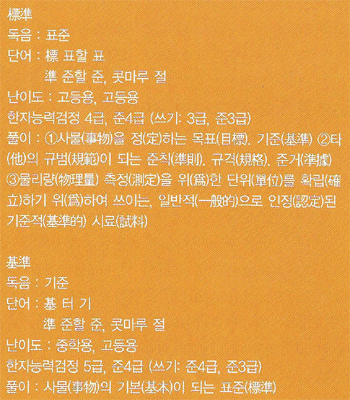 標準
독음 : 표준
단어 : 標 표할 표
準 준할 준, 콧마루 절
난이도 : 고등용, 고등용
한자능력검정 4급, 준4급 (쓰기: 3급, 준3급)
풀이 : ①사물(事物)을 정(定)하는 목표(目標). 기준(基準) ②타
(他)의 규범(規範)이 되는 준칙(準則), 규격(規格), 준거(準據)
③물리량(物理量) 측정(測定)을 위(爲)한 단위(單位)를 확립(確
立)하기 위(爲)하여 쓰이는, 일반적(一般的)으로 인정(認定)된
기준적(基準的) 시료(試料)
基準
독음 : 기준
단어 : 基 터 기
準 준할 준, 콧마루 절
난이도 : 중학용, 고등용
한자능력검정 5급, 준4급 (쓰기: 준4급, 준3급)
풀이 : 사물(事物)의 기본(基本)이 되는 표준(標準)